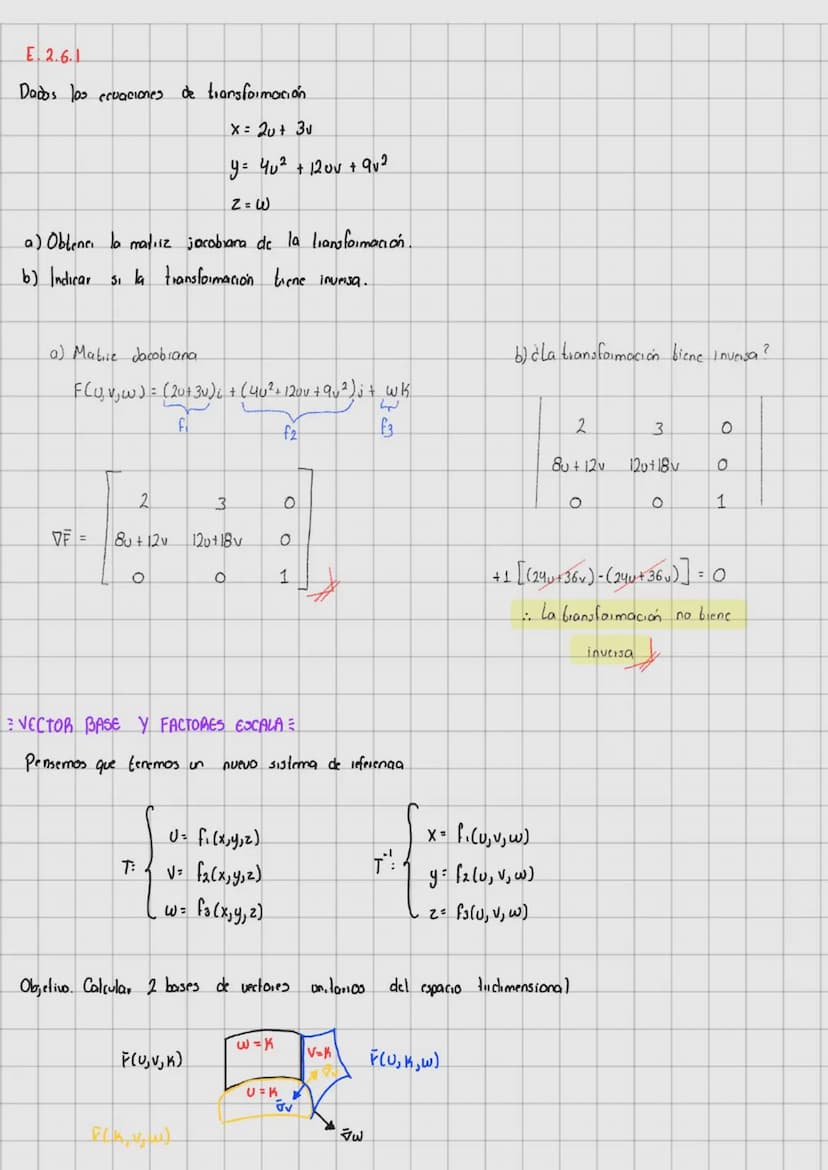 E. 2.6.1
Dados las ecuaciones de transformación
x = 2u + 3v
y = 4u² + 12uv + 9v²
z = w
a) Obtener la matriz jacobiana de la transformación.
b) Indicar si la transformación tiene inversa.
a) Matriz Jacobiana
F(u,v,w) = (2u+3v)i + (4u²+12uv+9v²)j + wk
f₁ f₂ f₃
∇F̄ = [ 2 3 0
8u+12v 12u+18v 0
0 0 1 ]
b) ¿La transformación tiene inversa?
| 2 3 0 |
| 8u+12v 12u+18v 0 |
| 0 0 1 |
+1 [(24u+36v)-(24u+36v)] = 0
∴ La transformación no tiene
inversa
VECTOR BASE Y FACTORES ESCALA
Pensemos que tenemos un nuevo sistema de referencia
T: { u = f₁(x,y,z)
v = f₂(x,y,z)
w = f₃(x,y,z)
T⁻¹: { x = f₁(u,v,w)
y = f₂(u,v,w)
z = f₃(u,v,w)
Objetivo. Calcular 2 bases de vectores unitarios del espacio tridimensional
r̄(u,v,k)
w = k
v = k
r̄(u,k,w)
u = k
∇̄v
∇̄w
r̄(k,v,w)